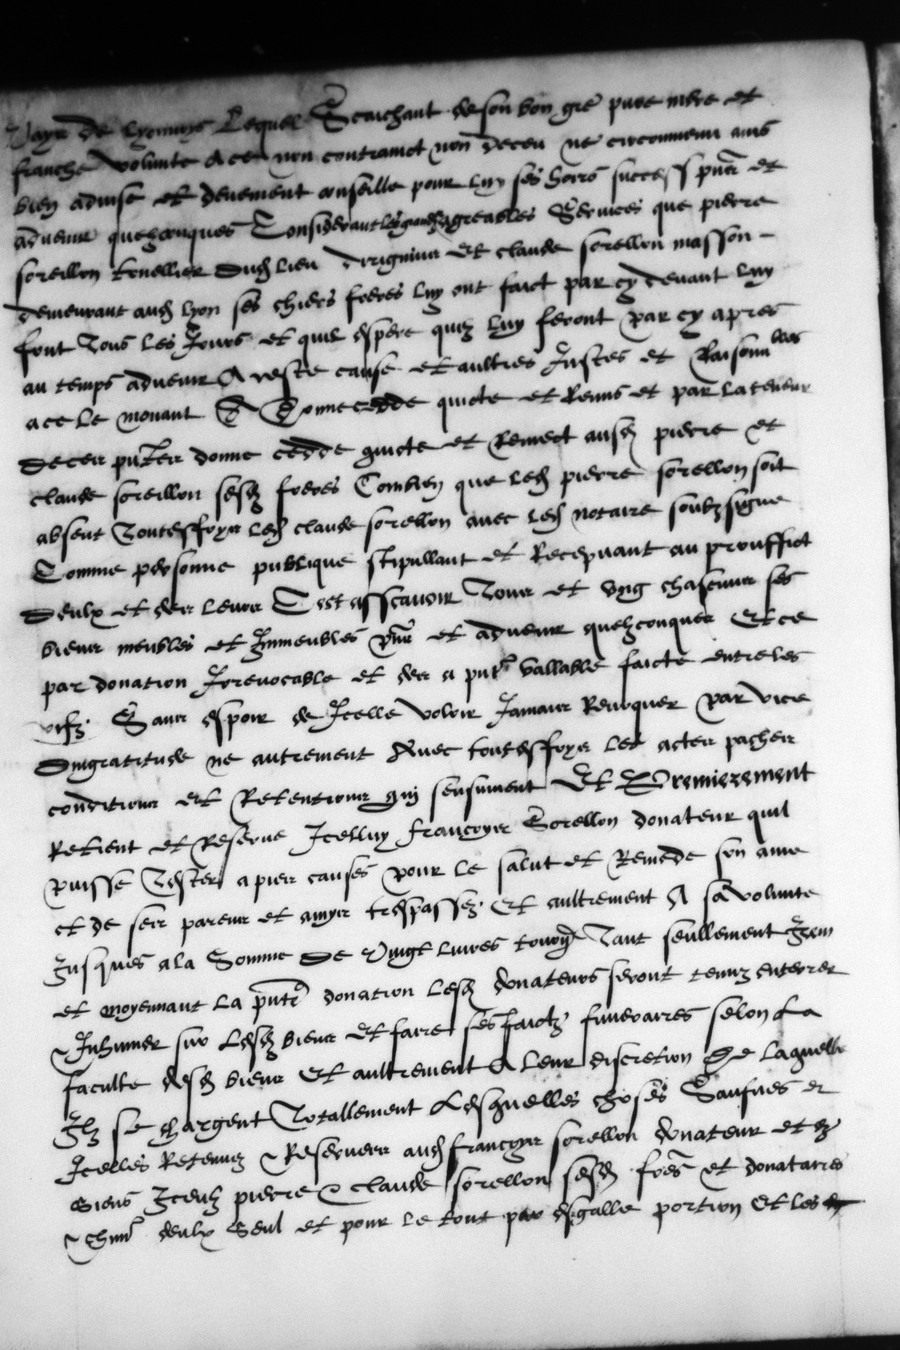 Pays de Lyonnoys Lequel Scaichant de son bon gre pure mere et
franche volunte A ce non contrainct non deceu ne circonvenu ains
bien advise et deuement conseille pour luy ses hoirs success pntz et
advenir quelzconques Considerant les grandz agreables Services que pierre
sorellon tonellier dudt lieu et claude sorellon masson -
demeurant audt lyon ses chiers freres luy ont faict par cy devant luy
font Tous les Jours et quil espere quilz luy feront par cy apres
au temps advenir A ceste cause et aultres Justes et Raisonnables
a ce le mouant A Donne cedde quicte et Remis et par la teneur
de ces pntes donne cedde quicte et Remect ausd pierre et
claude sorellon sesd freres Combien que led pierre sorellon soit
absent Touteffoys led claude sorellon avec led notaire soubzsigne
Comme personne publique stipullant et Recepvant au prouffict
deulx et des leurs Cest asscavoir Tous et ung chascuns ses
biens meubles et Immeubles pntz et advenir quelzconques Et ce
par donation Irrevocable et des a pnt vallable faicte entre les
vifz Sans espoir de Icelle voloir Jamais Revoquer par vice
Dingratitude ne autrement Avec touteffoys les actes paches
conditions et Retentions qui sensuivent Et Premierement
Retient et Reserve Icelluy francoys Sorellon donateur quil
puisse Tester a pies causes pour le salut et Remede son ame
et de ses parens et amys trespassez Et aultrement A sa volunte
Jusques a la Somme De Vingt livres tournoys Tant seullement Item
et moyennant la pnte donation lesd donateurs seront tenuz enterrer
Inhumer sur Lesd biens Et faire ses faictz funeraires selon La
faculte desd biens Et aultrement A leur discretion De laquelle
Ilz se chargent Totallement Lesquelles choses Saufves et
Icelles Retenuz Reserves aud francoys sorellon donateur et es
siens Iceulx pierre & claude sorellon sesd freres et donataires
& chun deulx seul et pour le tout par esgalle portion Et les